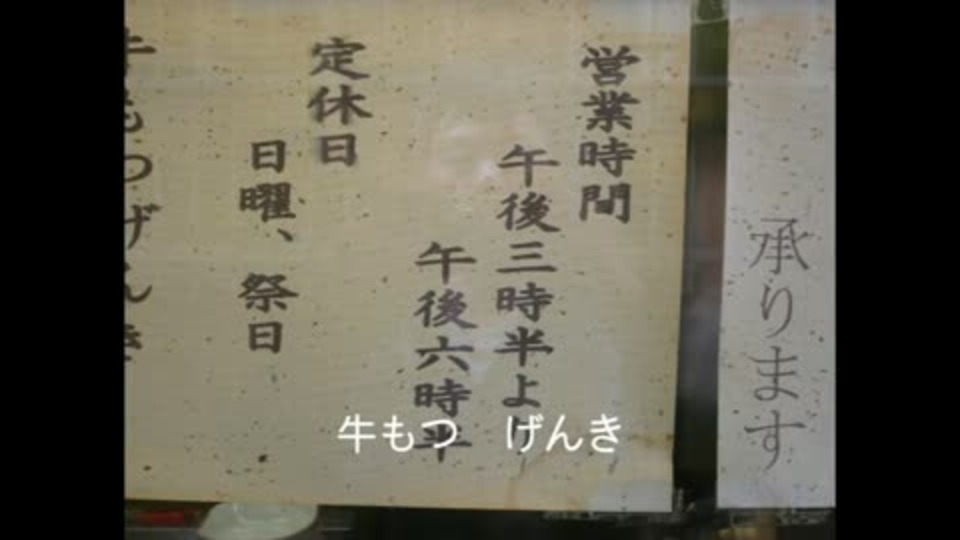 承ります
営業時間
午後三時半よ
午後六時半
定休日
日曜、祭日
牛もつげんき
牛もつ　げんき